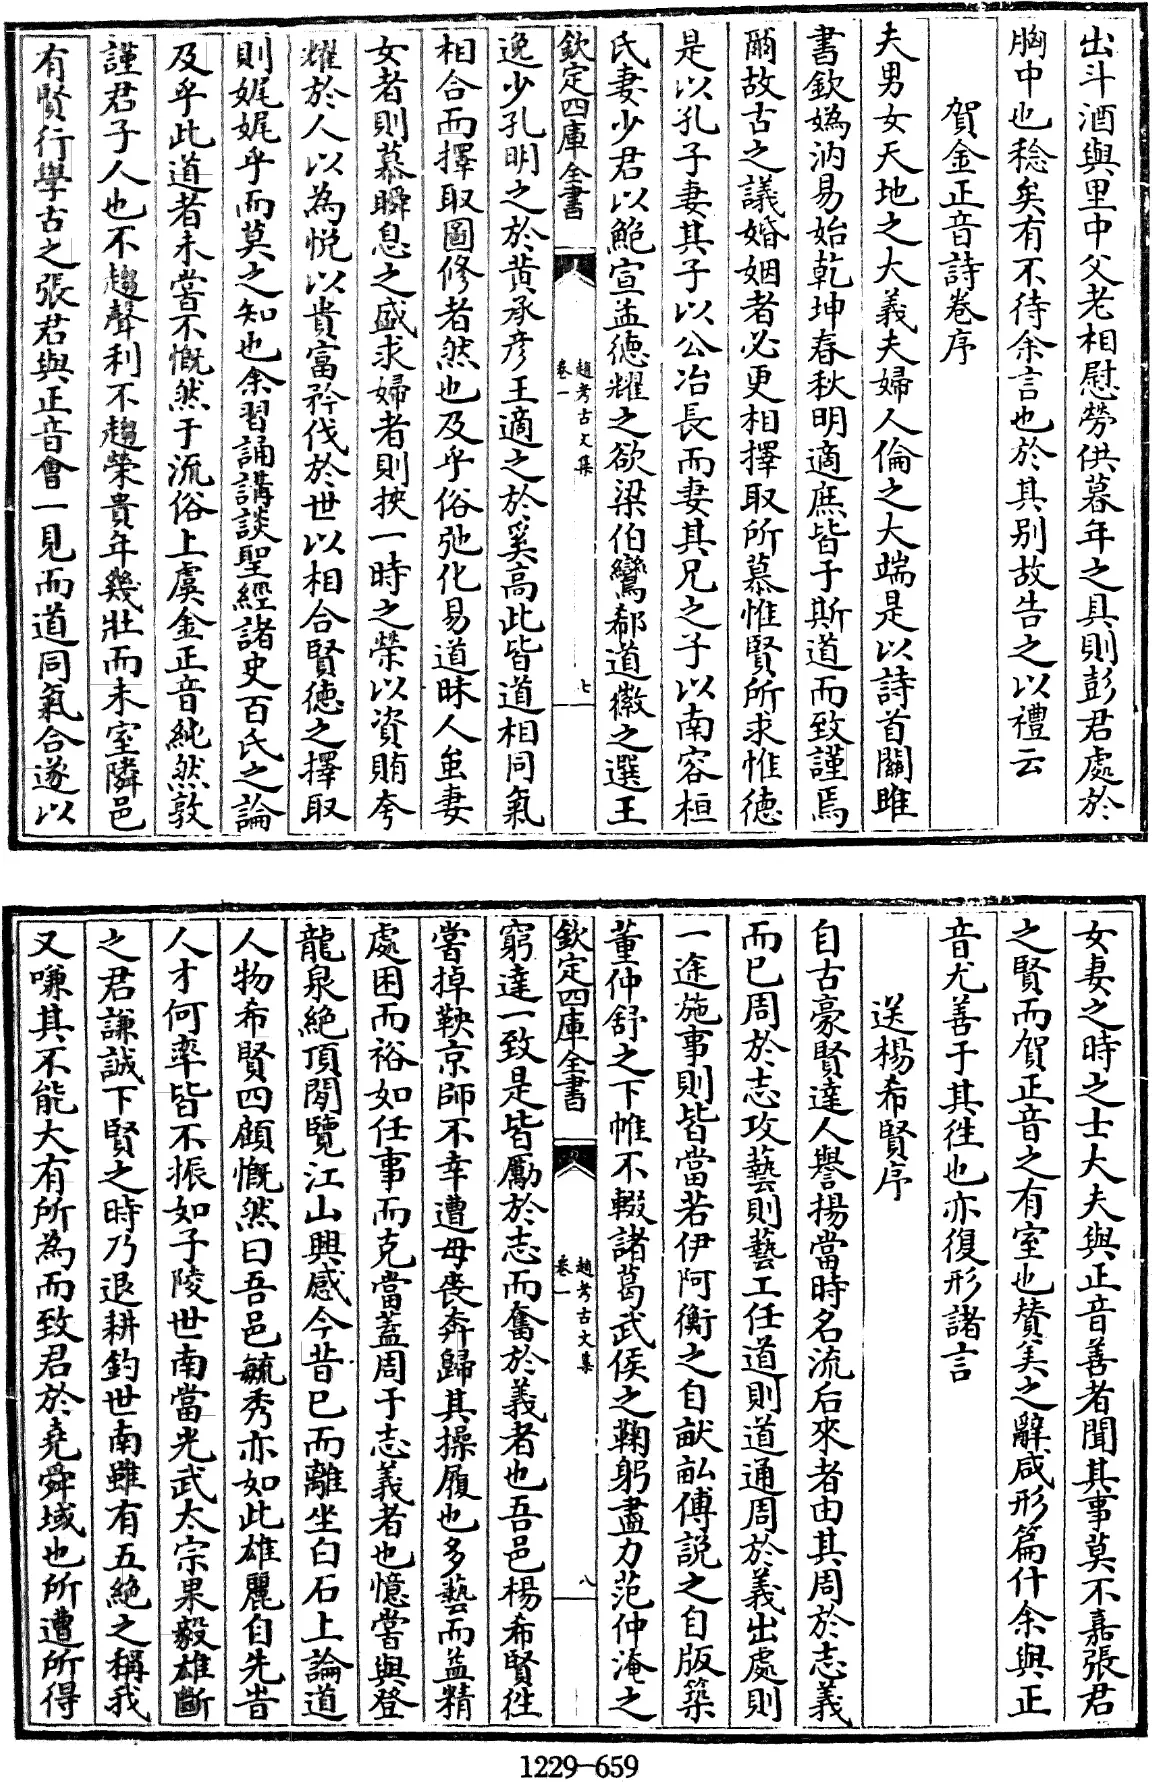 出斗酒與里中父老相慰勞供暮年之具則彭君處於
胸中也稔矣有不待余言也於其别故告之以禮云
賀金正音詩卷序
夫男女天地之大義夫婦人倫之大端是以詩首關雎
書欽媯汭易始乾坤春秋明適庶皆于斯道而致謹焉
爾故古之議婚姻者必更相擇取所慕惟賢所求惟德
是以孔子妻其子以公冶長而妻其兄之子以南容桓
氏妻少君以鮑宣孟德耀之欲梁伯鸞郗道徽之選王
欽定四庫全書
趙考古文集
卷一
七
逸少孔明之於黄承彦王適之於奚高此皆道相同氣
相合而擇取圖修者然也及乎俗弛化易道昧人蚩妻
女者則慕瞬息之盛求婦者則挾一時之榮以資賄夸
耀於人以為悦以貴富矜伐於世以相合賢德之擇取
則娓娓乎而莫之知也余習誦講談聖經諸史百氏之論
及乎此道者未嘗不慨然于流俗上虞金正音純然敦
謹君子人也不趨聲利不趨榮貴年幾壯而未室隣邑
有賢行學古之張君與正音會一見而道同氣合遂以
女妻之時之士大夫與正音善者聞其事莫不嘉張君
之賢而賀正音之有室也賛美之辭咸形篇什余與正
音尤善于其徃也亦復形諸言
送楊希賢序
自古豪賢達人譽揚當時名流后來者由其周於志義
而已周於志攻藝則藝工任道則道通周於義出處則
一途施事則皆當若伊阿衡之自畎畝傅説之自版築
董仲舒之下帷不輟諸葛武侯之鞠躬盡力范仲淹之
欽定四庫全書
趙考古文集
卷一
八
窮達一致是皆勵於志而奮於義者也吾邑楊希賢徃
嘗掉鞅京師不幸遭母喪奔歸其操履也多藝而益精
處困而裕如任事而克當蓋周于志義者也憶嘗與登
龍泉絶頂閲覽江山興感今昔已而離坐白石上論道
人物希賢四顧慨然曰吾邑毓秀亦如此雄麗自先昔
人才何率皆不振如子陵世南當光武太宗果毅雄斷
之君謙誠下賢之時乃退耕釣世南雖有五絶之稱我
又嗛其不能大有所為而致君於堯舜域也所遭所得
1229-659